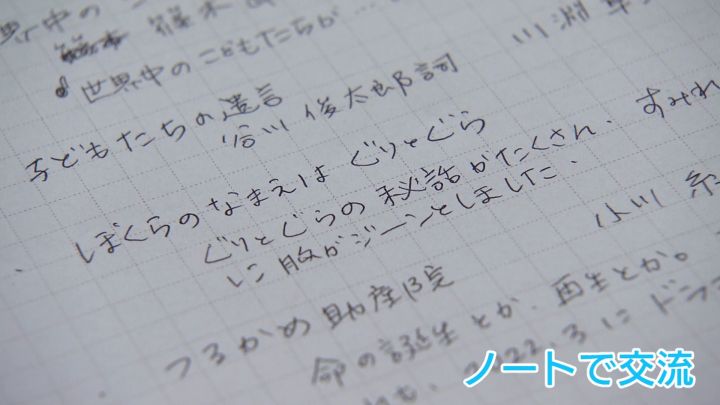 界中の
世界中の こどもたちが…
子どもたちの遺言
谷川 俊太郎 詞
ぼくらのなまえは ぐりとぐら
ぐりとぐらの秘話がたくさん、すみれ
に胸がジーンとしました。
小川 糸
つるかめ助産院
命の誕生とか、再生とか。
2022.3に ドラ
ノートで交流